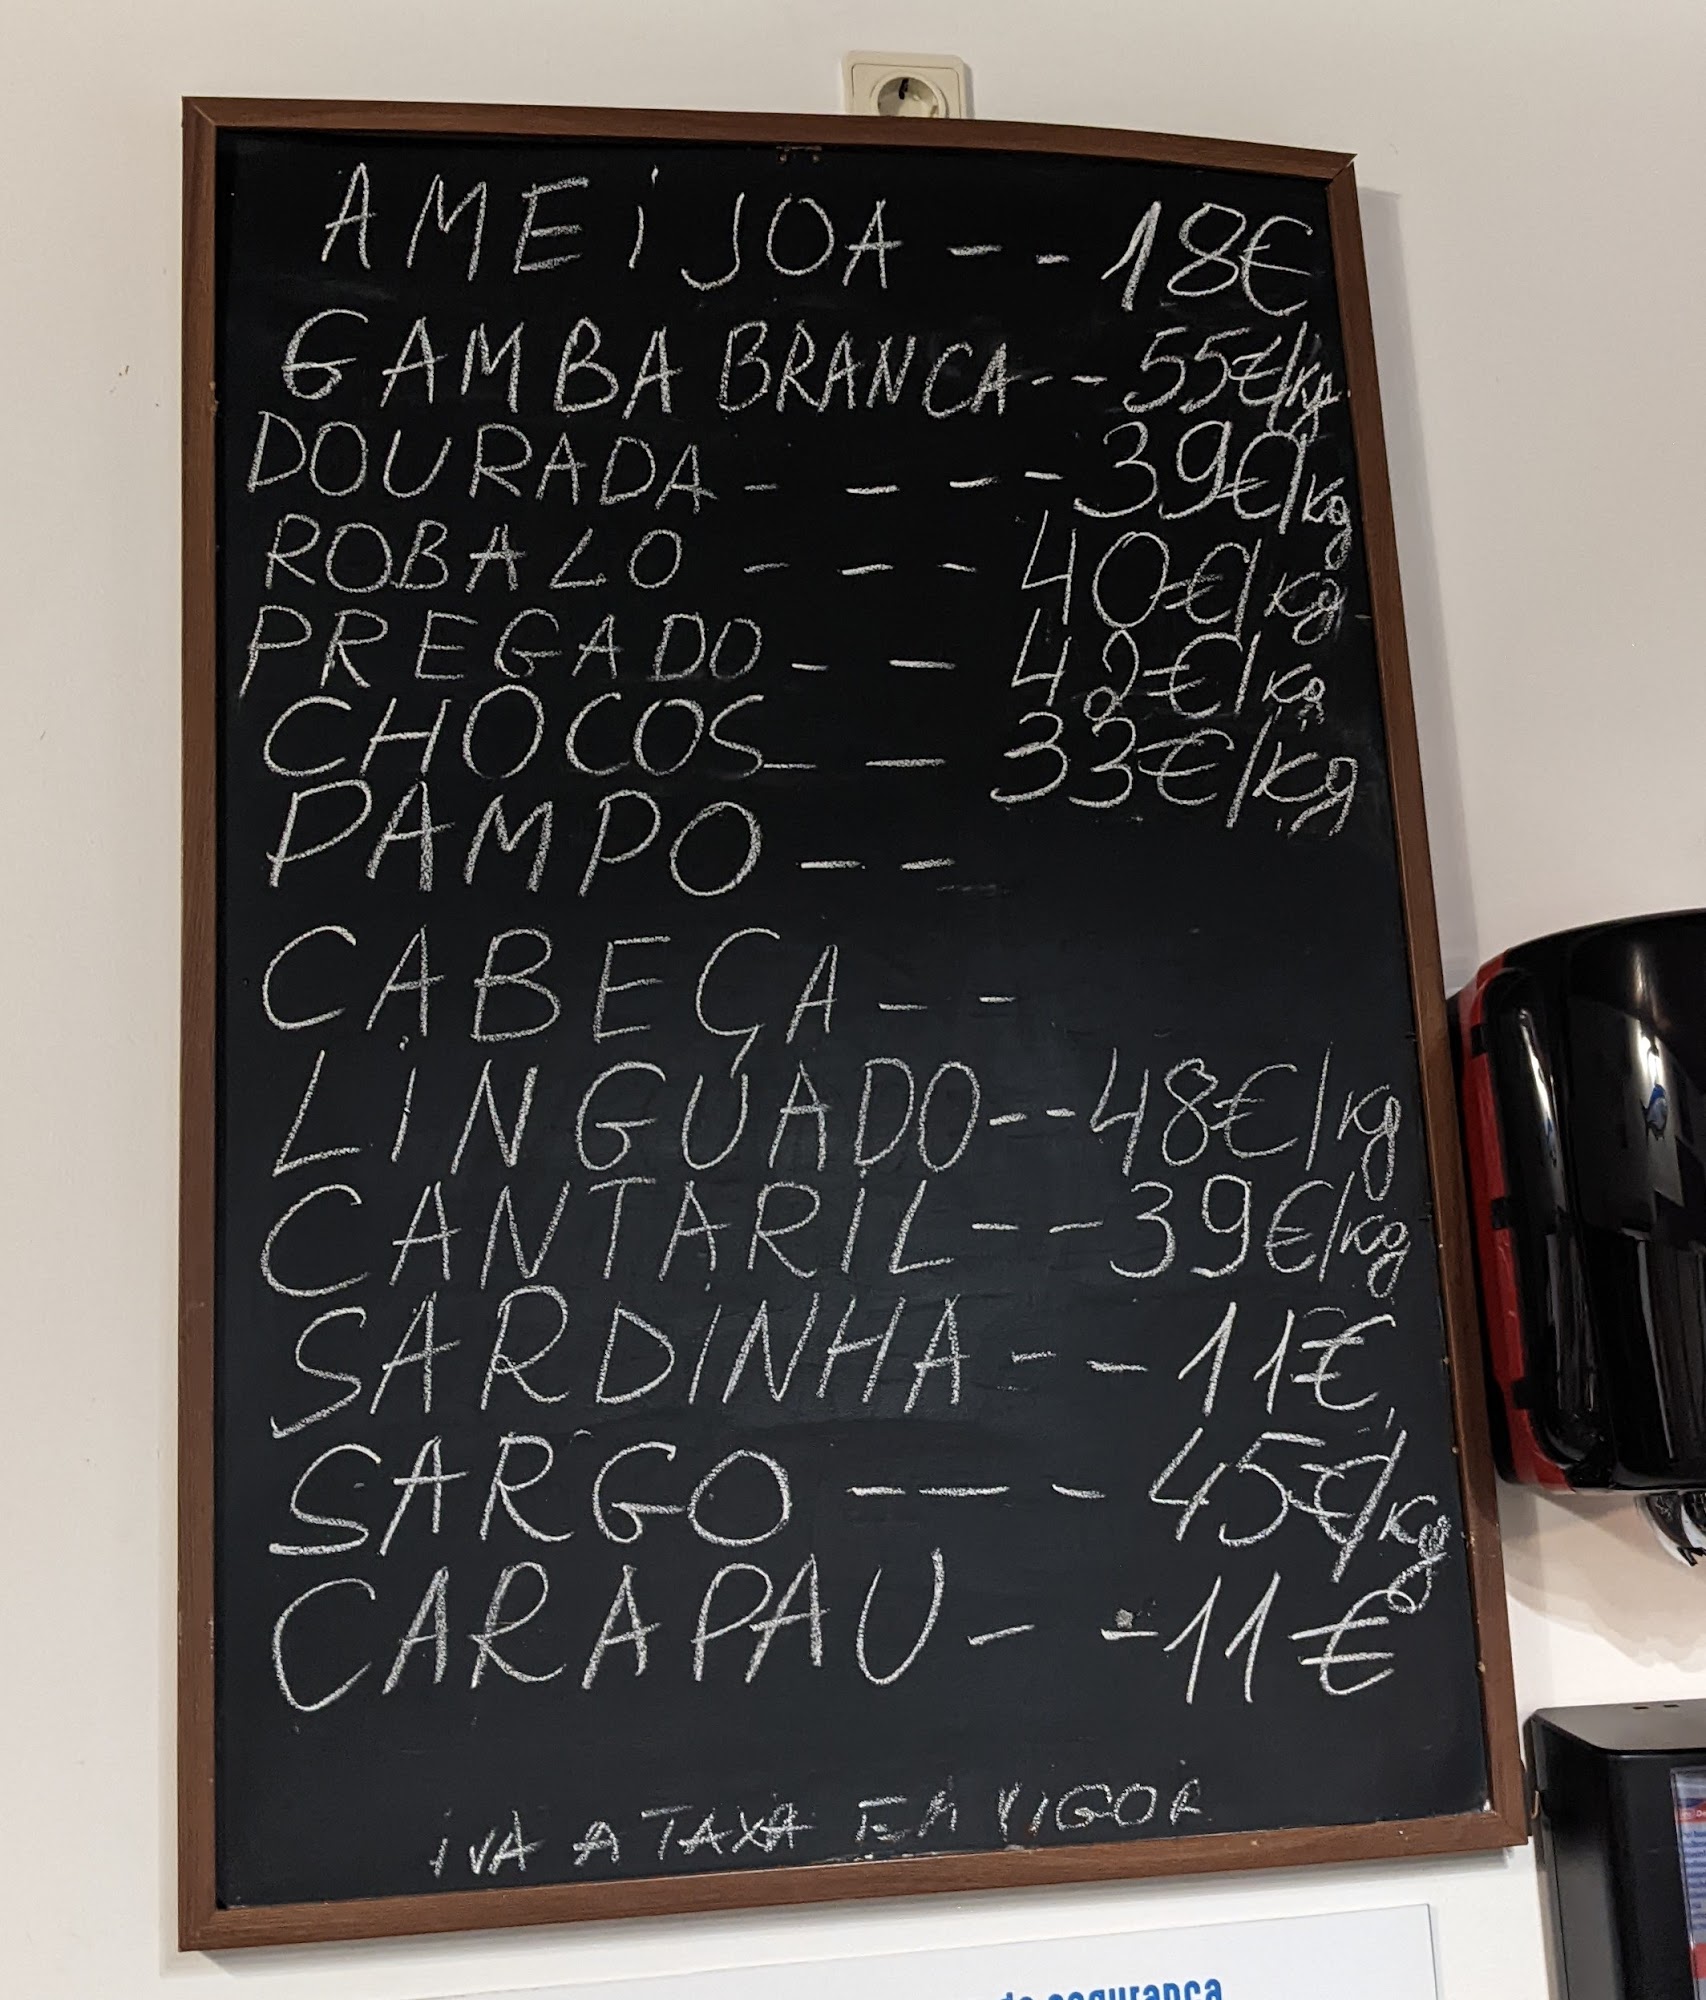 AMEiJOA -- 18€
GAMBA BRANCA -- 55€/kg
DOURADA ---- 39€/kg
ROBALO --- 40€/kg
PREGADO -- 42€/kg
CHOCOS -- 33€/kg
PAMPO --
CABEÇA --
LiNGUADO -- 48€/kg
CANTARIL -- 39€/kg
SARDINHA -- 11€
SARGO --- 45€/kg
CARAPAU -- 11€
iVA A TAXA EM VIGOR
segurança